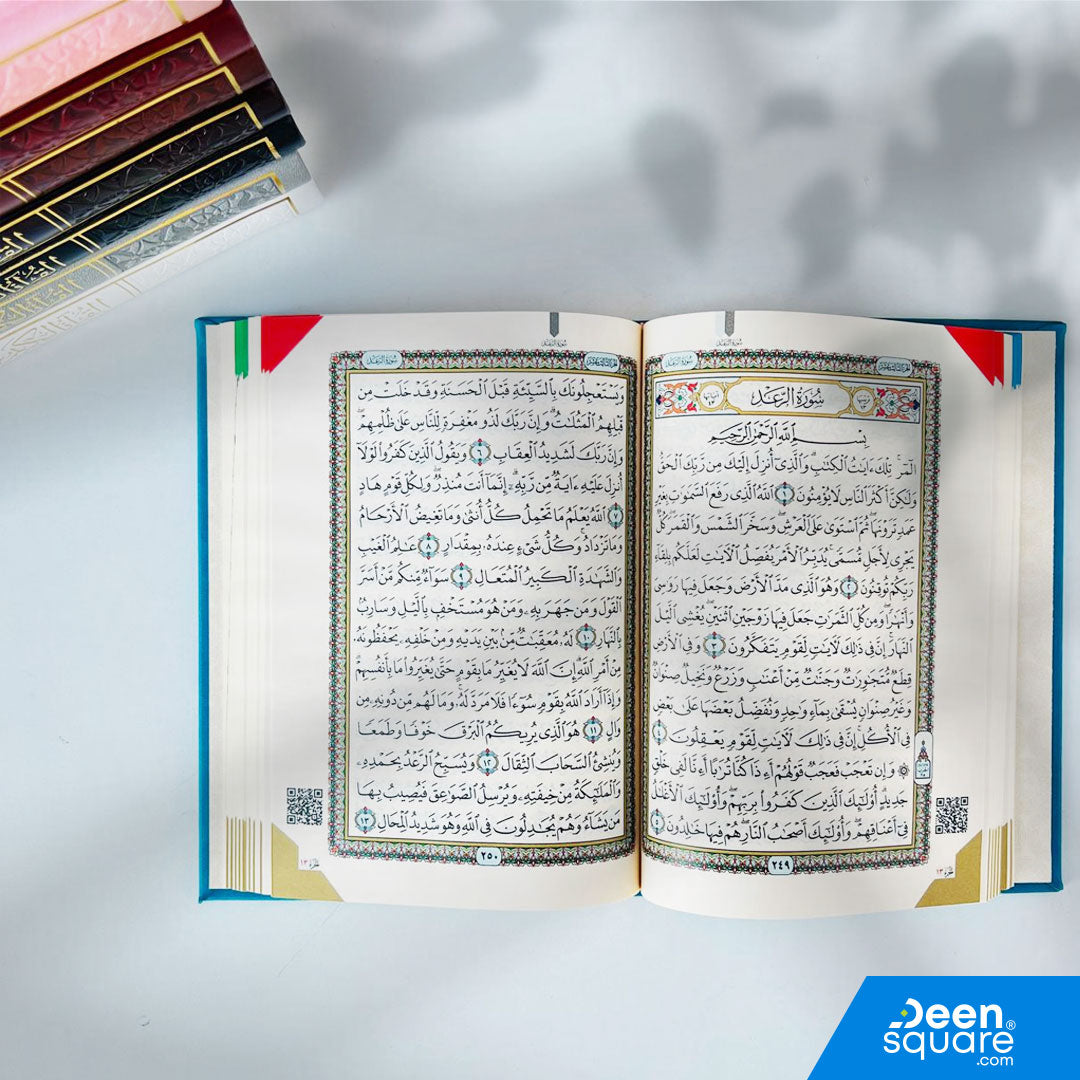 سُورَةُ الرَّعْدِ
سُورَةُ الرَّعْدِ
سُورَةُ الرَّعْدِ
بِسْمِ ٱللَّهِ ٱلرَّحْمَٰنِ ٱلرَّحِيمِ
الٓمٓر ۚ تِلْكَ ءَايَٰتُ ٱلْكِتَٰبِ ۗ وَٱلَّذِىٓ أُنزِلَ إِلَيْكَ مِن رَّبِّكَ ٱلْحَقُّ
وَلَٰكِنَّ أَكْثَرَ ٱلنَّاسِ لَا يُؤْمِنُونَ ١ ٱللَّهُ ٱلَّذِى رَفَعَ ٱلسَّمَٰوَٰتِ بِغَيْرِ
عَمَدٍ تَرَوْنَهَا ۖ ثُمَّ ٱسْتَوَىٰ عَلَى ٱلْعَرْشِ ۖ وَسَخَّرَ ٱلشَّمْسَ وَٱلْقَمَرَ ۖ كُلٌّ
يَجْرِى لِأَجَلٍ مُّسَمًّى ۚ يُدَبِّرُ ٱلْأَمْرَ يُفَصِّلُ ٱلْءَايَٰتِ لَعَلَّكُم بِلِقَآءِ
رَبِّكُمْ تُوقِنُونَ ٢ وَهُوَ ٱلَّذِى مَدَّ ٱلْأَرْضَ وَجَعَلَ فِيهَا رَوَٰسِىَ
وَأَنْهَٰرًا ۖ وَمِن كُلِّ ٱلثَّمَرَٰتِ جَعَلَ فِيهَا زَوْجَيْنِ ٱثْنَيْنِ ۖ يُغْشِى ٱلَّيْلَ
ٱلنَّهَارَ ۚ إِنَّ فِى ذَٰلِكَ لَءَايَٰتٍ لِّقَوْمٍ يَتَفَكَّرُونَ ٣ وَفِى ٱلْأَرْضِ
قِطَعٌ مُّتَجَٰوِرَٰتٌ وَجَنَّٰتٌ مِّنْ أَعْنَٰبٍ وَزَرْعٌ وَنَخِيلٌ صِنْوَانٌ
وَغَيْرُ صِنْوَانٍ يُسْقَىٰ بِمَآءٍ وَٰحِدٍ وَنُفَضِّلُ بَعْضَهَا عَلَىٰ بَعْضٍ
فِى ٱلْأُكُلِ ۚ إِنَّ فِى ذَٰلِكَ لَءَايَٰتٍ لِّقَوْمٍ يَعْقِلُونَ ٤
۞ وَإِن تَعْجَبْ فَعَجَبٌ قَوْلُهُمْ أَءِذَا كُنَّا تُرَٰبًا أَءِنَّا لَفِى خَلْقٍ
جَدِيدٍ ۗ أُو۟لَٰٓئِكَ ٱلَّذِينَ كَفَرُوا۟ بِرَبِّهِمْ ۖ وَأُو۟لَٰٓئِكَ ٱلْأَغْلَٰلُ
فِىٓ أَعْنَاقِهِمْ ۖ وَأُو۟لَٰٓئِكَ أَصْحَٰبُ ٱلنَّارِ ۖ هُمْ فِيهَا خَٰلِدُونَ ٥
٢٤٩
١٣
سُورَةُ الرَّعْدِ
سُورَةُ الرَّعْدِ
وَيَسْتَعْجِلُونَكَ بِٱلسَّيِّئَةِ قَبْلَ ٱلْحَسَنَةِ وَقَدْ خَلَتْ مِن
قَبْلِهِمُ ٱلْمَثُلَٰتُ ۗ وَإِنَّ رَبَّكَ لَذُو مَغْفِرَةٍ لِّلنَّاسِ عَلَىٰ ظُلْمِهِمْ ۖ
وَإِنَّ رَبَّكَ لَشَدِيدُ ٱلْعِقَابِ ٦ وَيَقُولُ ٱلَّذِينَ كَفَرُوا۟ لَوْلَآ
أُنزِلَ عَلَيْهِ ءَايَةٌ مِّن رَّبِّهِۦٓ ۗ إِنَّمَآ أَنتَ مُنذِرٌ ۖ وَلِكُلِّ قَوْمٍ هَادٍ
٧ ٱللَّهُ يَعْلَمُ مَا تَحْمِلُ كُلُّ أُنثَىٰ وَمَا تَغِيضُ ٱلْأَرْحَامُ
وَمَا تَزْدَادُ ۖ وَكُلُّ شَىْءٍ عِندَهُۥ بِمِقْدَارٍ ٨ عَٰلِمُ ٱلْغَيْبِ
وَٱلشَّهَٰدَةِ ٱلْكَبِيرُ ٱلْمُتَعَالِ ٩ سَوَآءٌ مِّنكُم مَّنْ أَسَرَّ
ٱلْقَوْلَ وَمَن جَهَرَ بِهِۦ وَمَنْ هُوَ مُسْتَخْفٍۭ بِٱلَّيْلِ وَسَارِبٌۢ
بِٱلنَّهَارِ ١٠ لَهُۥ مُعَقِّبَٰتٌ مِّنۢ بَيْنِ يَدَيْهِ وَمِنْ خَلْفِهِۦ يَحْفَظُونَهُۥ
مِنْ أَمْرِ ٱللَّهِ ۗ إِنَّ ٱللَّهَ لَا يُغَيِّرُ مَا بِقَوْمٍ حَتَّىٰ يُغَيِّرُوا۟ مَا بِأَنفُسِهِمْ ۗ
وَإِذَآ أَرَادَ ٱللَّهُ بِقَوْمٍ سُوٓءًا فَلَا مَرَدَّ لَهُۥ ۚ وَمَا لَهُم مِّن دُونِهِۦ مِن
وَالٍ ١١ هُوَ ٱلَّذِى يُرِيكُمُ ٱلْبَرْقَ خَوْفًا وَطَمَعًا
وَيُنشِئُ ٱلسَّحَابَ ٱلثِّقَالَ ١٢ وَيُسَبِّحُ ٱلرَّعْدُ بِحَمْدِهِۦ
وَٱلْمَلَٰٓئِكَةُ مِنْ خِيفَتِهِۦ وَيُرْسِلُ ٱلصَّوَٰعِقَ فَيُصِيبُ بِهَا
مَن يَشَآءُ وَهُمْ يُجَٰدِلُونَ فِى ٱللَّهِ وَهُوَ شَدِيدُ ٱلْمِحَالِ ١٣
٢٥٠
١٣
Deen
square®
.com